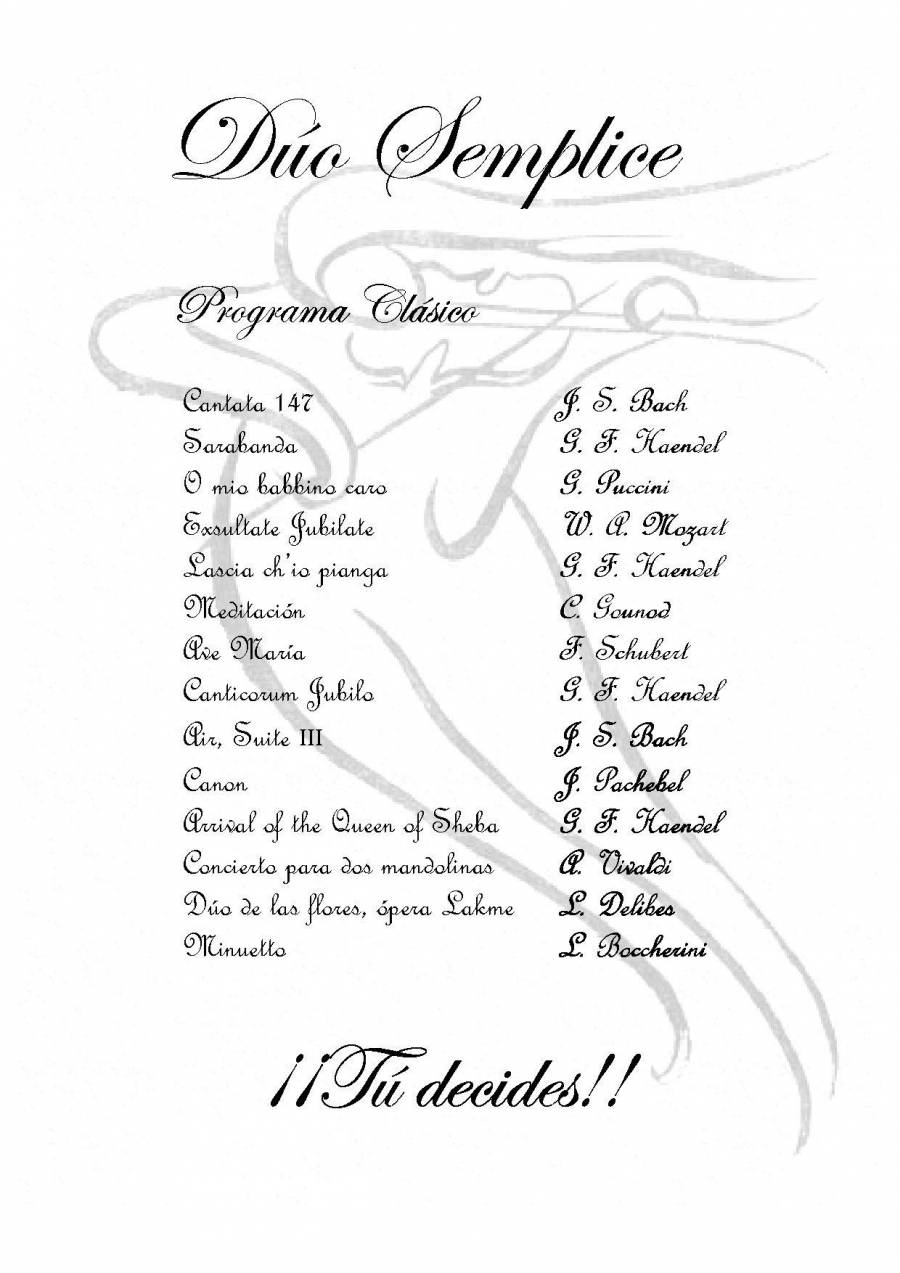 Dúo Semplice
Programa Clásico
Cantata 147 J. S. Bach
Sarabanda G. F. Haendel
O mio babbino caro G. Puccini
Exsultate Jubilate W. A. Mozart
Lascia ch'io pianga G. F. Haendel
Meditación C. Gounod
Ave María F. Schubert
Canticorum Jubilo G. F. Haendel
Air, Suite III J. S. Bach
Canon J. Pachebel
Arrival of the Queen of Sheba G. F. Haendel
Concierto para dos mandolinas A. Vivaldi
Dúo de las flores, ópera Lakme L. Delibes
Minuetto L. Boccherini
¡¡Tú decides!!